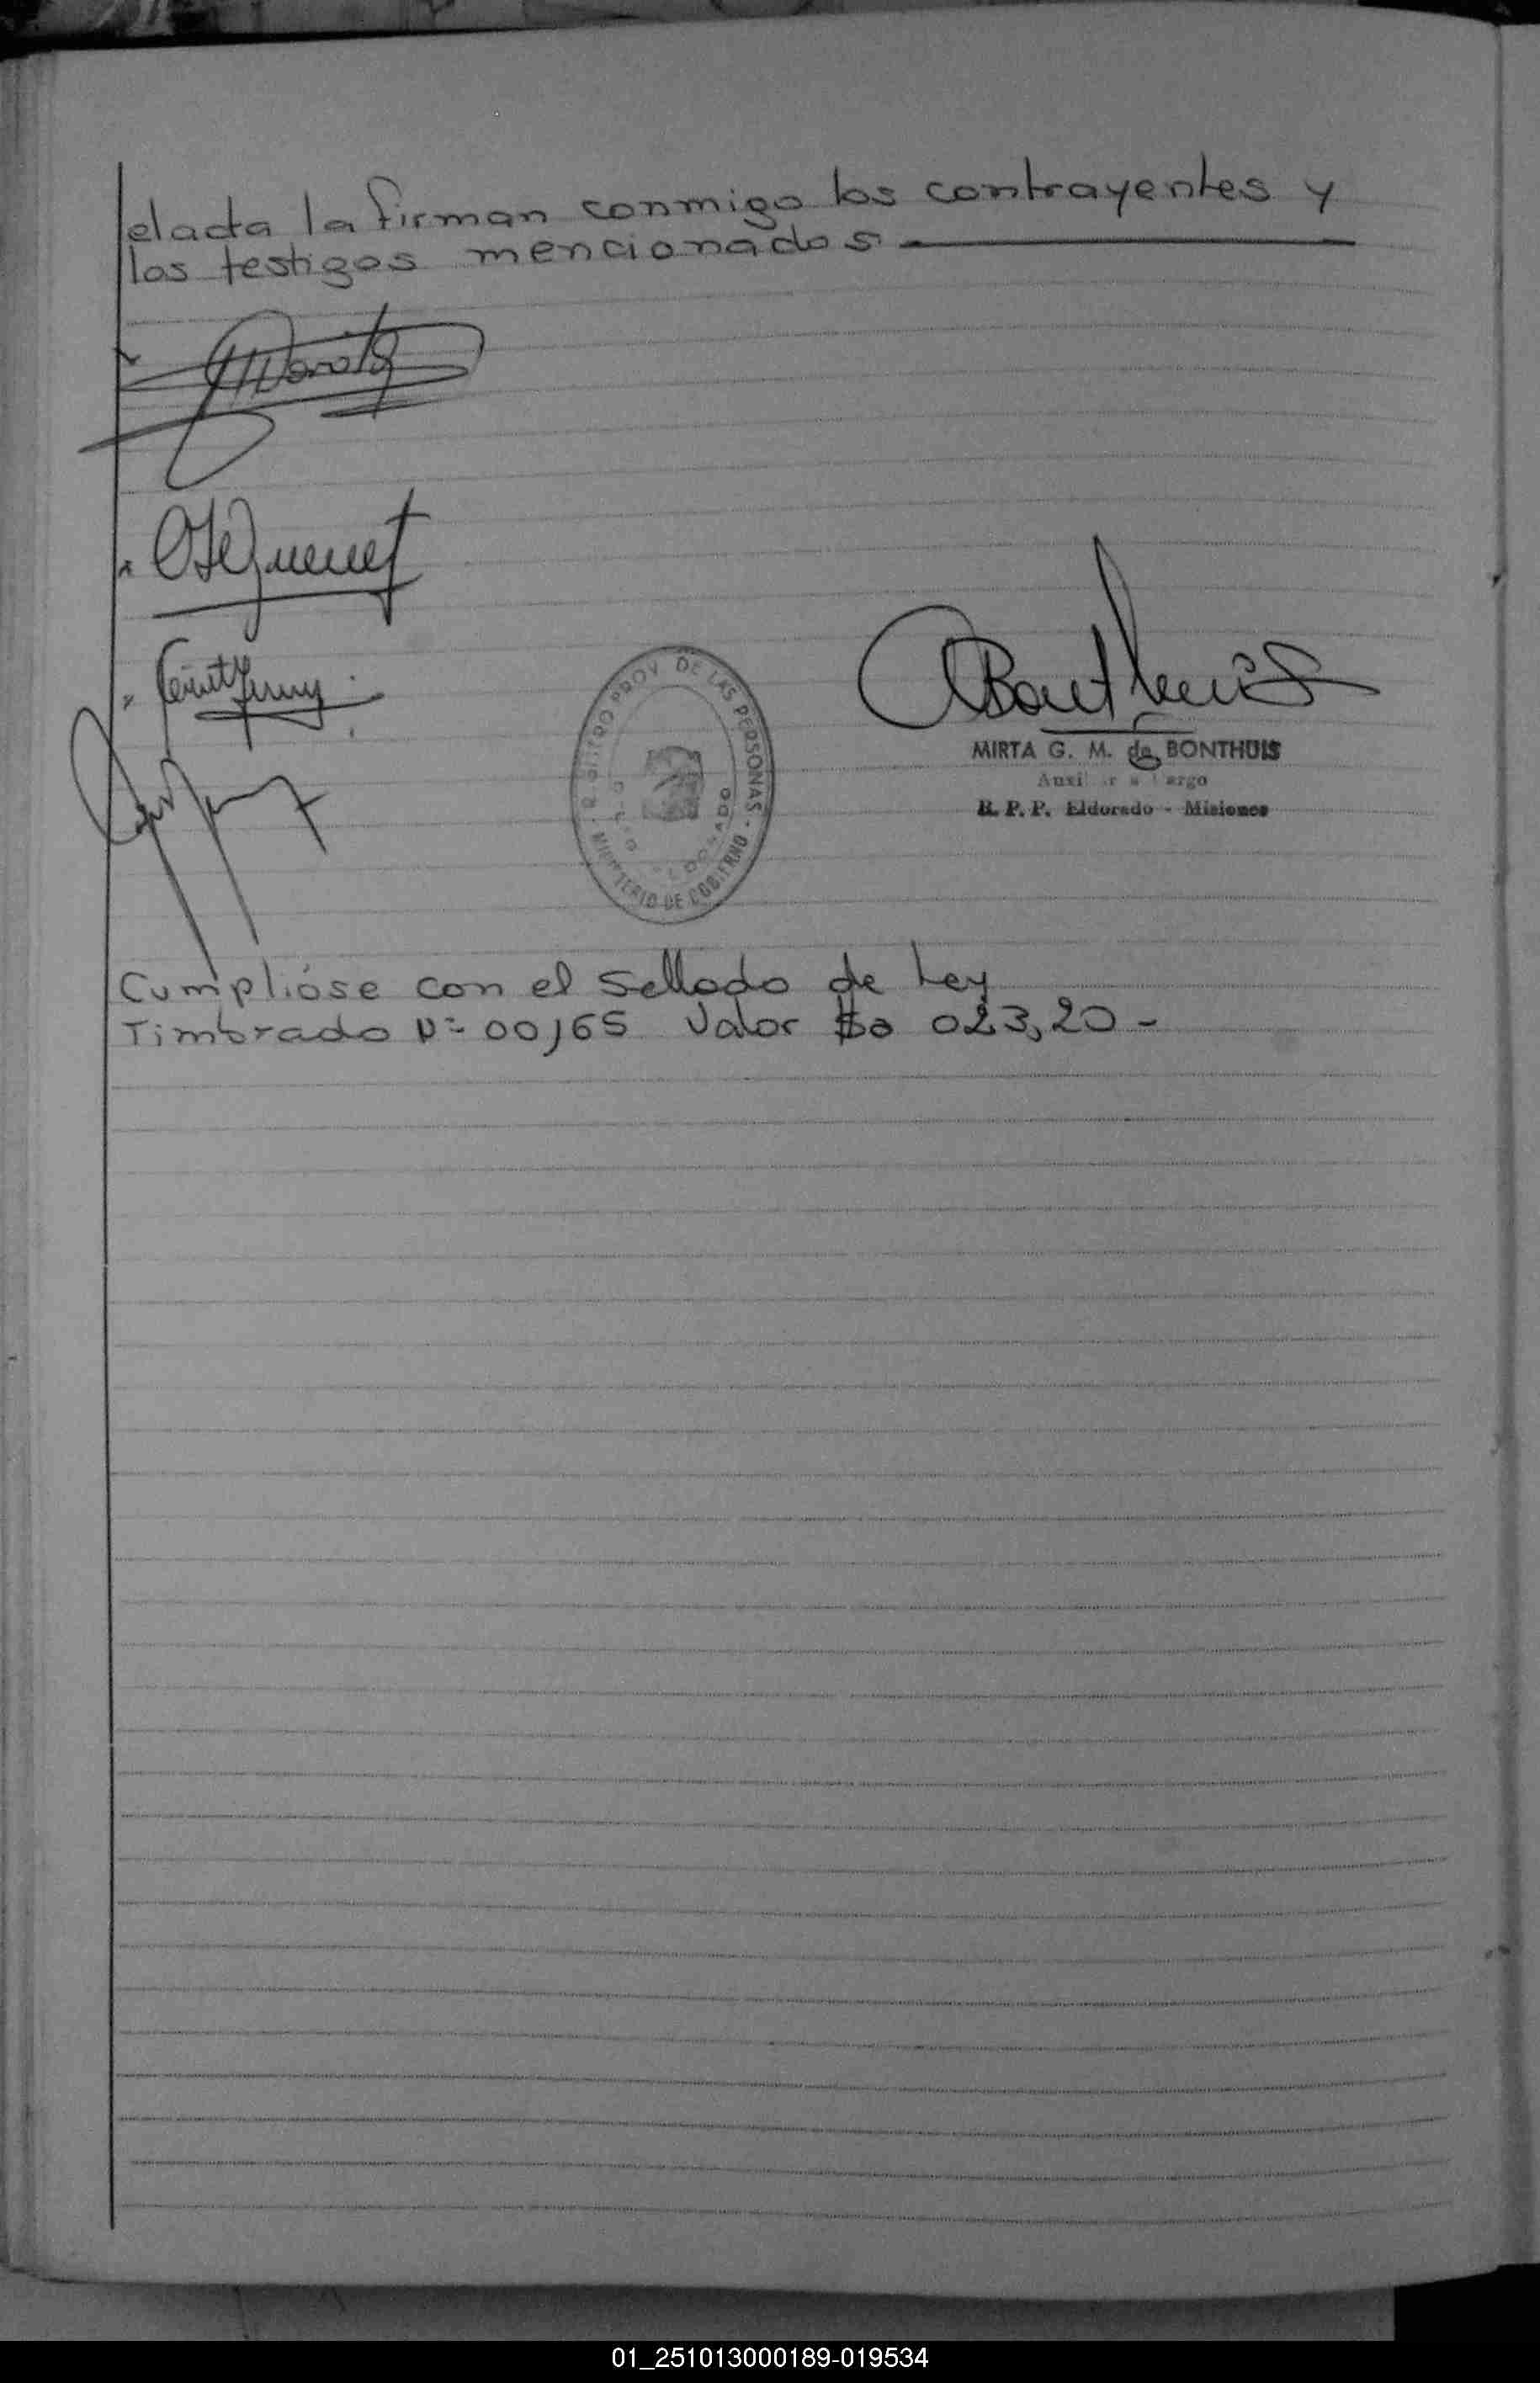 el acta la firman conmigo los contrayentes y
los testigos mencionados
REGISTRO PROV. DE LAS PERSONAS
ELDORADO
MINISTERIO DE GOBIERNO
MIRTA G. M. de BONTHUIS
R. P. P. Eldorado - Misiones
Cumplióse con el Sellado de Ley
Timbrado Nº 00165 Valor $a 023,20-
01_251013000189-019534